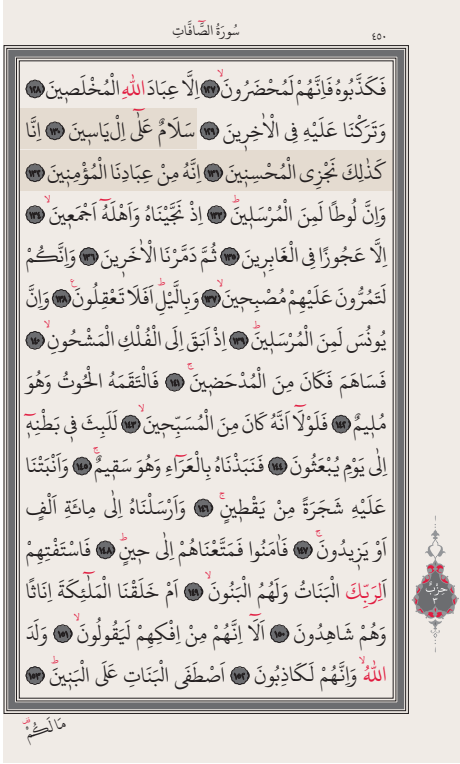 سُورَةُ الصَّٓافَّاتِ ٤٥٠
فَكَذَّبُوهُ فَاِنَّهُمْ لَمُحْضَرُونَۙ ﴿١٢٧﴾ اِلَّا عِبَادَ اللّٰهِ الْمُخْلَصٖينَ ﴿١٢٨﴾
وَتَرَكْنَا عَلَيْهِ فِي الْاٰخِرٖينَ ﴿١٢٩﴾ سَلَامٌ عَلٰٓى اِلْ‌يَاسٖينَ ﴿١٣٠﴾ اِنَّا
كَذٰلِكَ نَجْزِي الْمُحْسِنٖينَ ﴿١٣١﴾ اِنَّهُ مِنْ عِبَادِنَا الْمُؤْمِنٖينَ ﴿١٣٢﴾
وَاِنَّ لُوطًا لَمِنَ الْمُرْسَلٖينَۜ ﴿١٣٣﴾ اِذْ نَجَّيْنَاهُ وَاَهْلَهُٓ اَجْمَعٖينَۙ ﴿١٣٤﴾
اِلَّا عَجُوزًا فِي الْغَابِرٖينَ ﴿١٣٥﴾ ثُمَّ دَمَّرْنَا الْاٰخَرٖينَ ﴿١٣٦﴾ وَاِنَّكُمْ
لَتَمُرُّونَ عَلَيْهِمْ مُصْبِحٖينَۙ ﴿١٣٧﴾ وَبِالَّيْلِۜ اَفَلَا تَعْقِلُونَ۟ ﴿١٣٨﴾ وَاِنَّ
يُونُسَ لَمِنَ الْمُرْسَلٖينَۜ ﴿١٣٩﴾ اِذْ اَبَقَ اِلَى الْفُلْكِ الْمَشْحُونِۙ ﴿١٤٠﴾
فَسَاهَمَ فَكَانَ مِنَ الْمُدْحَضٖينَۚ ﴿١٤١﴾ فَالْتَقَمَهُ الْحُوتُ وَهُوَ
مُلٖيمٌ ﴿١٤٢﴾ فَلَوْلَٓا اَنَّهُ كَانَ مِنَ الْمُسَبِّحٖينَۙ ﴿١٤٣﴾ لَلَبِثَ فٖي بَطْنِهٖٓ
اِلٰى يَوْمِ يُبْعَثُونَ ﴿١٤٤﴾ فَنَبَذْنَاهُ بِالْعَرَٓاءِ وَهُوَ سَقٖيمٌۚ ﴿١٤٥﴾ وَاَنْبَتْنَا
عَلَيْهِ شَجَرَةً مِنْ يَقْطٖينٍۚ ﴿١٤٦﴾ وَاَرْسَلْنَاهُ اِلٰى مِائَةِ اَلْفٍ
اَوْ يَزٖيدُونَۚ ﴿١٤٧﴾ فَاٰمَنُوا فَمَتَّعْنَاهُمْ اِلٰى حٖينٍۜ ﴿١٤٨﴾ فَاسْتَفْتِهِمْ
اَلِرَبِّكَ الْبَنَاتُ وَلَهُمُ الْبَنُونَۙ ﴿١٤٩﴾ اَمْ خَلَقْنَا الْمَلٰٓئِكَةَ اِنَاثًا
وَهُمْ شَاهِدُونَ ﴿١٥٠﴾ اَلَٓا اِنَّهُمْ مِنْ اِفْكِهِمْ لَيَقُولُونَۙ ﴿١٥١﴾ وَلَدَ
اللّٰهُۙ وَاِنَّهُمْ لَكَاذِبُونَ ﴿١٥٢﴾ اَصْطَفَى الْبَنَاتِ عَلَى الْبَنٖينَۜ ﴿١٥٣﴾
حِزْبْ
٣
مَا لَكُمْ۠